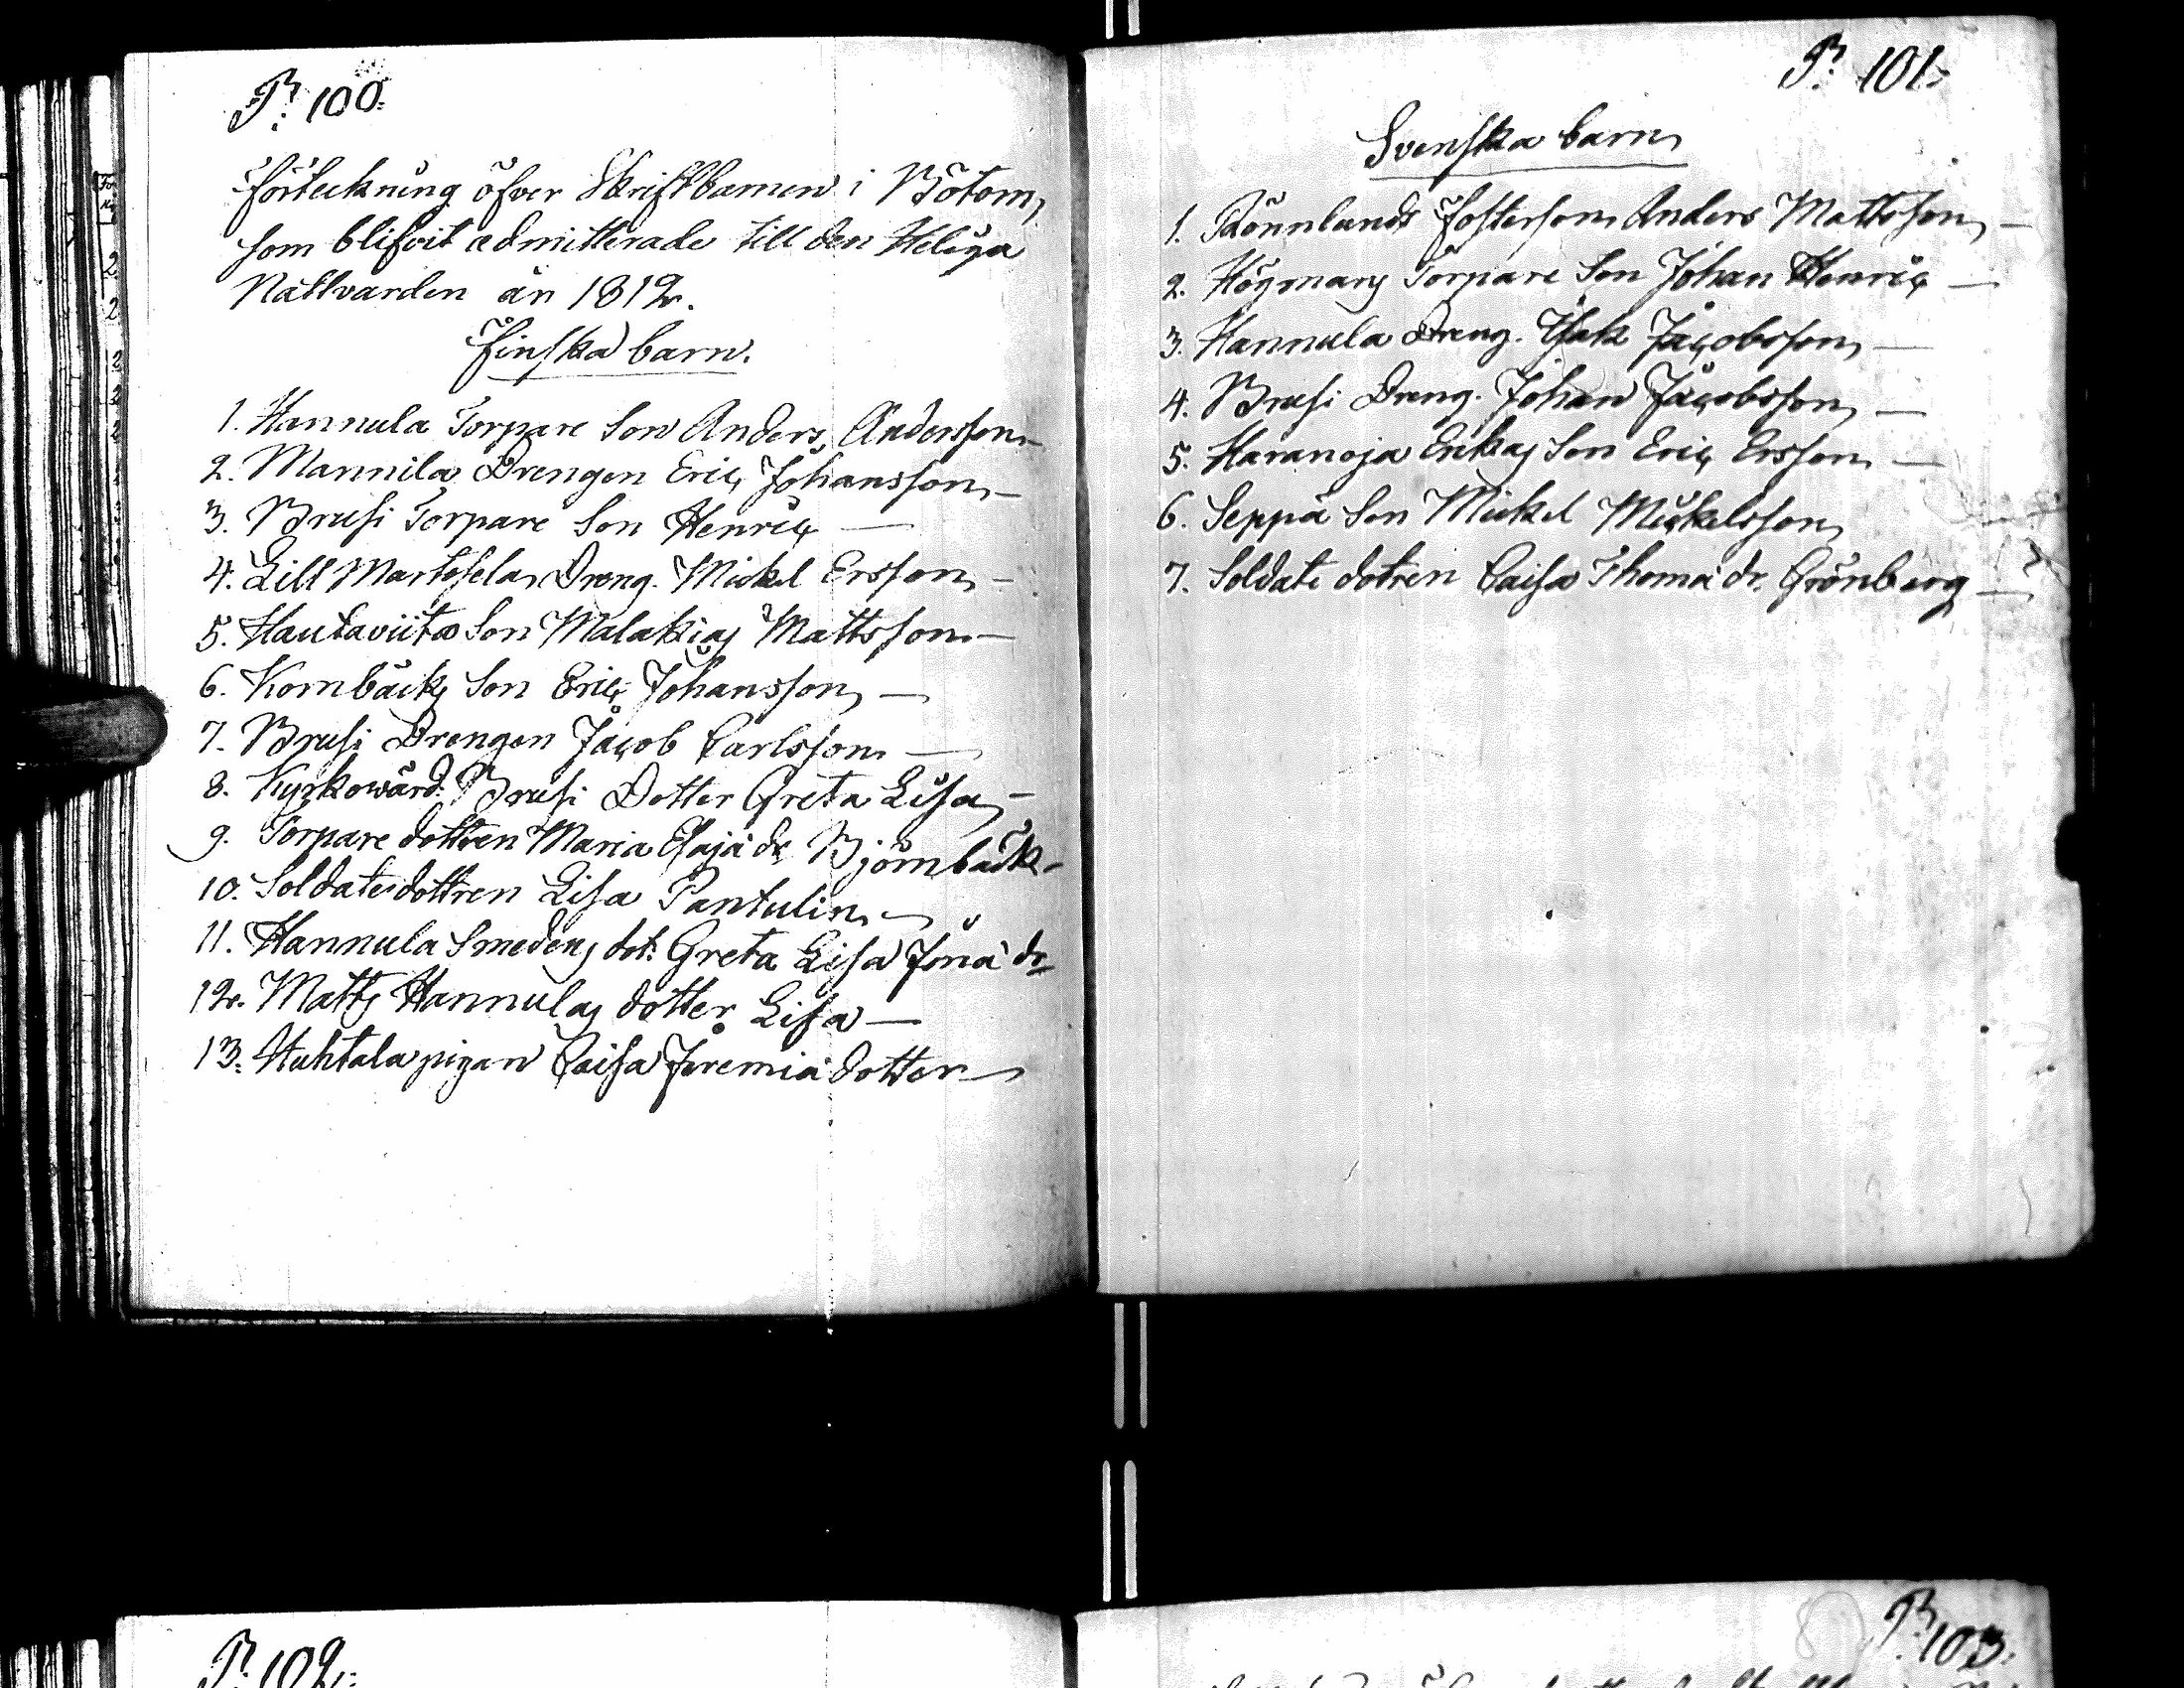 P. 100.
Förteckning öfver Skriftbarnen i Bötom,
som blifvit admitterade till den Heliga
Nattvarden år 1812.
Finska barn.
1. Hannula Torpare Son Anders Andersson —
2. Mannila Drengen Eric Johansson —
3. Brusi Torpare Son Henric —
4. Lill Martosela Dreng. Mickel Ersson —
5. Hautaviita Son Malakias Mattsson —
6. Kornbäcks Son Eric Johansson —
7. Brusi Drengen Jacob Carlsson —
8. Kyrkowärd: Brusi Dotter Greta Lisa —
9. Torpare dottren Maria Esajæ dr Björnbäck —
10. Soldatedottren Lisa Pantulin —
11. Hannula Smedens dot: Greta Lisa Jonæ dr
12. Matts Hannulas dotter Lisa —
13. Huhtala pigan Caisa Jeremiæ dotter —
P. 101.
Svenska barn
1. Rönnlunds fosterson Anders Mattsson —
2. Högmans Torpare Son Johan Henric —
3. Hannula Dreng. Isak Jacobsson —
4. Brusi Dreng. Johan Jacobsson —
5. Haranoja Enkas Son Eric Ersson —
6. Seppä Son Mickel Mickelsson
7. Soldate dotren Caisa Thomæ dr. Grönberg —
P. 102.
P. 103.